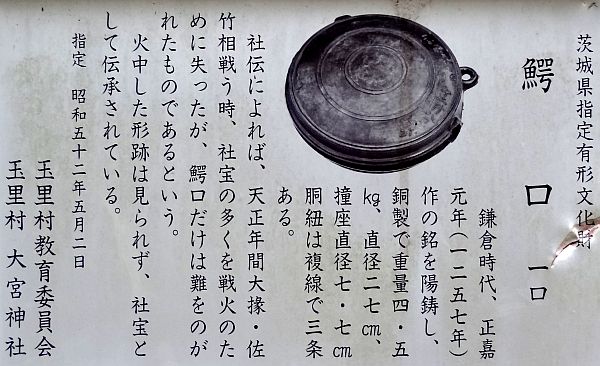 茨城県指定有形文化財
鰐口 一口
鎌倉時代、正嘉
元年(一二五七年)
作の銘を陽鋳し、
銅製で重量四・五
kg、直径二七cm、
撞座直径七・七cm
胴紐は複線で三条
ある。
社伝によれば、天正年間大掾・佐
竹相戦う時、社宝の多くを戦火のた
めに失ったが、鰐口だけは難をのが
れたものであるという。
火中した形跡は見られず、社宝と
して伝承されている。
指定 昭和五十二年五月二日
玉里村教育委員会
玉里村 大宮神社